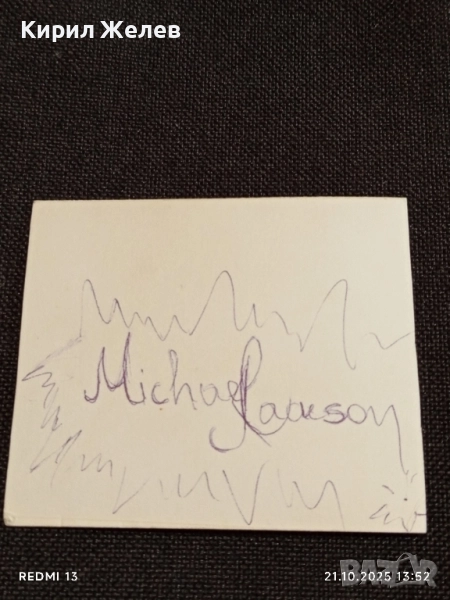 Кирил Желев
Michael Jackson
REDMI 13
21.10.2025 13:52
BAZAR